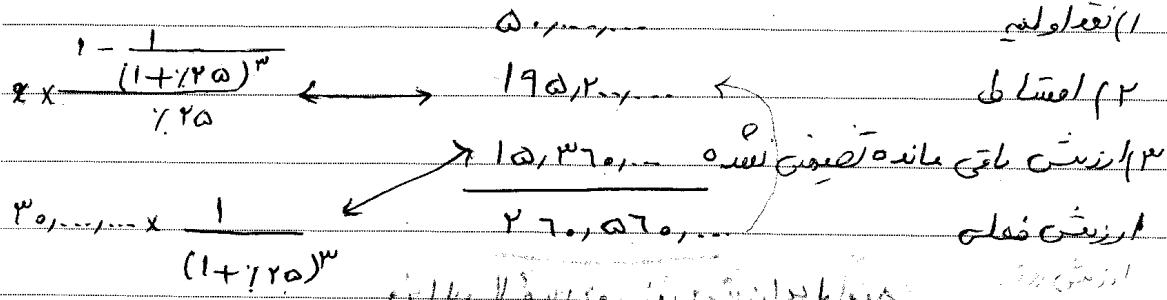 ۱) نقد اولیه ۵۰,۰۰۰,۰۰۰
۲) اقساط ۱۹۵,۲۰۰,۰۰۰ ↔ x × (۱ - ۱/(۱+٪۲۵)^۳) / ٪۲۵
۳) ارزش باقی مانده تضمین نشده ۱۵,۳۶۰,۰۰۰ ↔ ۳۰,۰۰۰,۰۰۰ × ۱/(۱+٪۲۵)^۳
ارزش فعلی ۲۶۰,۵۶۰,۰۰۰